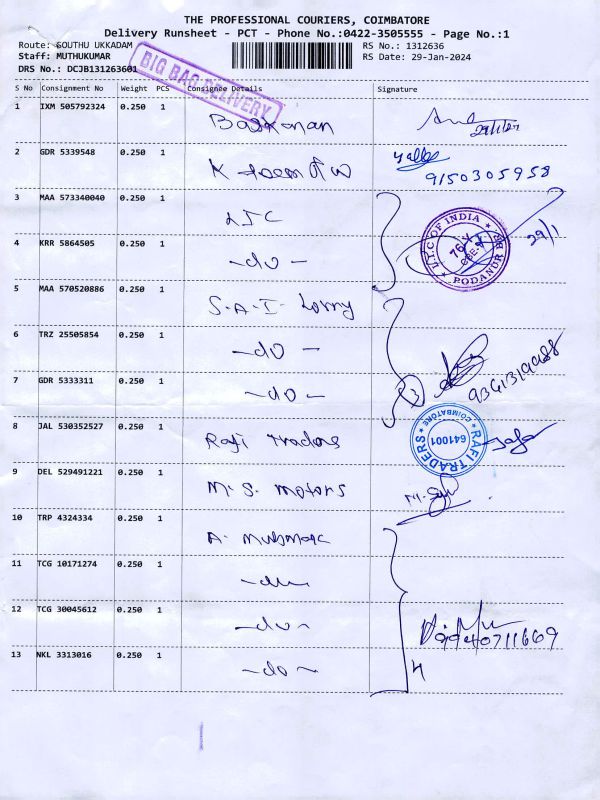 THE PROFESSIONAL COURIERS, COIMBATORE
Delivery Runsheet - PCT - Phone No.:0422-3505555 - Page No.:1
Route: SOUTHU UKKADAM
RS No.: 1312636
Staff: MUTHUKUMAR
RS Date: 29-Jan-2024
DRS No.: DCJB131263601
BIG BAG DELIVERY
S No Consignment No Weight PCS Consignee Details Signature
1 IXM 505792324 0.250 1
29/1/24
2 GDR 5339548 0.250 1 K
9150305958
3 MAA 573340040 0.250 1 LIC
L.I.C OF INDIA
PODANUR BR
29/1
4 KRR 5864505 0.250 1 -do-
5 MAA 570520886 0.250 1 S-A-I- Lorry
6 TRZ 25505854 0.250 1 -do-
7 GDR 5333311 0.250 1 -do- 3
8 JAL 530352527 0.250 1 Rafi Traders
RAFI TRADERS
COIMBATORE
641001
9 DEL 529491221 0.250 1 M.S. motors
10 TRP 4324334 0.250 1 A.
11 TCG 10171274 0.250 1 -do-
12 TCG 30045612 0.250 1 -do-
13 NKL 3313016 0.250 1 -do- 4